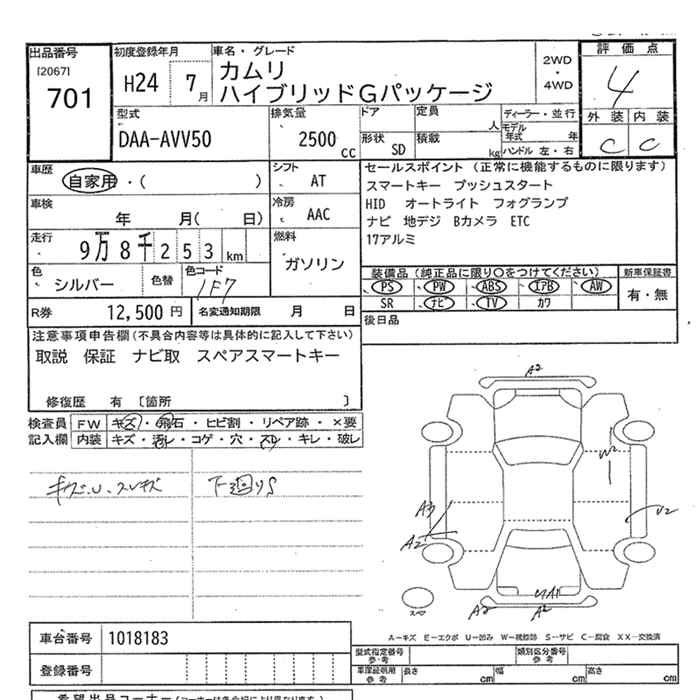 出品番号 初度登録年月 車名・グレード 評価点
[2067] 2WD
701 H24 7月 カムリ ・ 4
ハイブリッドGパッケージ 4WD
外装 内装
型式 排気量 ドア 定員 人 ディーラー・並行
DAA-AVV50 2500cc 形状 SD 積載 kg モデル年式 年 C C
ハンドル 左・右
車歴 シフト セールスポイント (正常に機能するものに限ります)
自家用・( ) AT スマートキー プッシュスタート
車検 冷房 HID オートライト フォグランプ
年 月( 日) AAC ナビ 地デジ Bカメラ ETC
走行 燃料 17アルミ
9万8千253km ガソリン
色 色替 色コード 装備品 (純正品に限り○をつけてください) 新車保証書
シルバー 1F7 PS PW ABS エアB AW 有・無
SR ナビ TV カワ
R券 12,500円 名変通知期限 月 日 後日品
注意事項申告欄(不具合内容等は具体的に記入して下さい)
取説 保証 ナビ取 スペアスマートキー
修復歴 有 〔箇所 〕
検査員 FW キズ・飛石・ヒビ割・リペア跡・×要
記入欄 内装 キズ・汚レ・コゲ・穴・スレ・キレ・破レ
キズ・U・スレキズ 下廻りS
A2
W2
A3
U2
A2
UA1
A2 A2
スペア
A-キズ E-エクボ U-凹み W-補修跡 S-サビ C-腐食 XX-交換済
車台番号 1018183
型式指定番号 参考 類別区分番号 参考
登録番号 車庫証明用 参考 長さ cm 幅 cm 高さ cm
希望出品コーナー